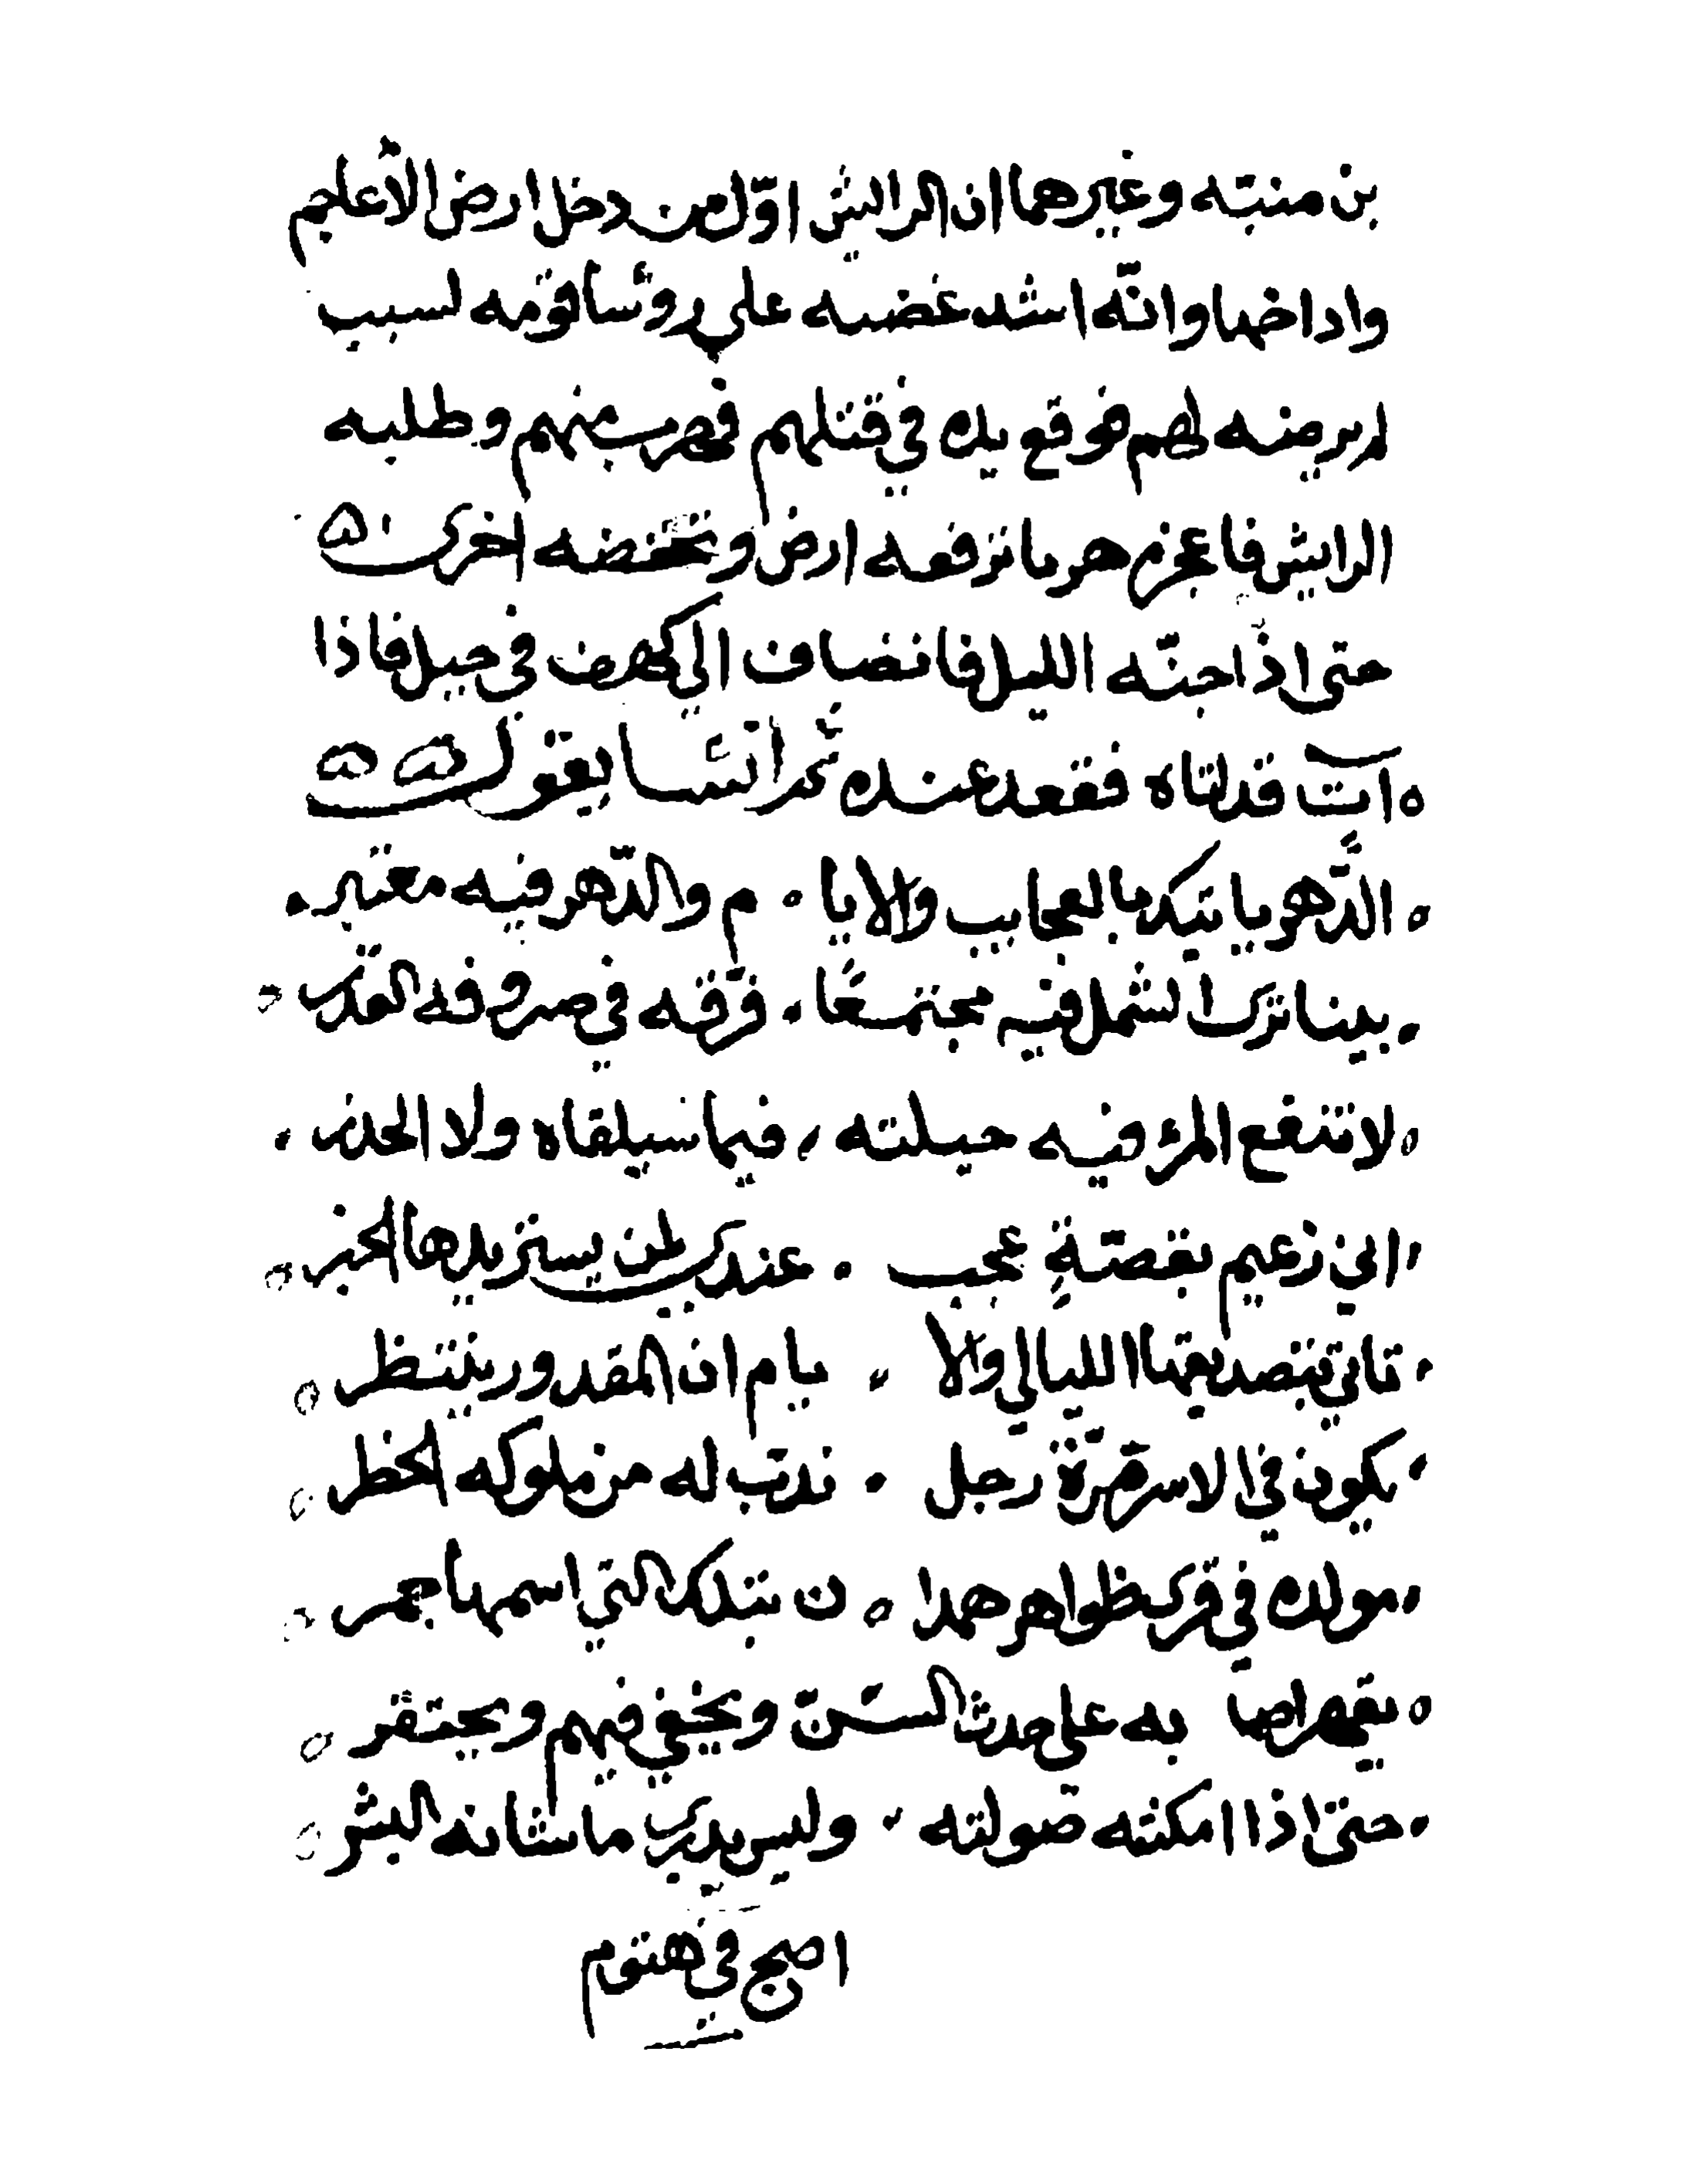 بن منبّه وغيرهما ان الرايش اوّل من دخل ارض الأعاجم
واداخها وانّه اشد غضبه على روسا قومه لسبب
لم يرضه لهم فوقع يده في قتلهم فهرب منهم وطلبه
الرايش فاعجزهم هربا ترفعه ارض وتخفضه اخرى
حتى اذا جنّه الليل فانضاف الى كهف في جبل فاذا
آت قد اتاه فقعد عنده ثم انشا يقول
الدّهر ياتيك بالعجايب والايا م والدّهر فيه معتبر
بينا ترى الشمل فيه مجتمعًا فرّقه في صروفه القدر
لا تنفع المرء فيه حيلته فيما سيلقاه ولا الحذر
اني زعيم بقصّةٍ عجب عندي لمن يستزيدها الخبر
تاتي بتصديقها الليالي والا يام ان المقدور ينتظر
يكون في الاسد مرّة رجل ندّب له من ملوكه الخطر
مولده في قرى ظواهر همدا ن بتلك التي اسمها خمر
يقهر اصحابه على حدث السّن ويخفي فيهم ويحتقر
حتى اذا امكنته صولته وليس يدري ما شانه البشر
اصبح في هنوم